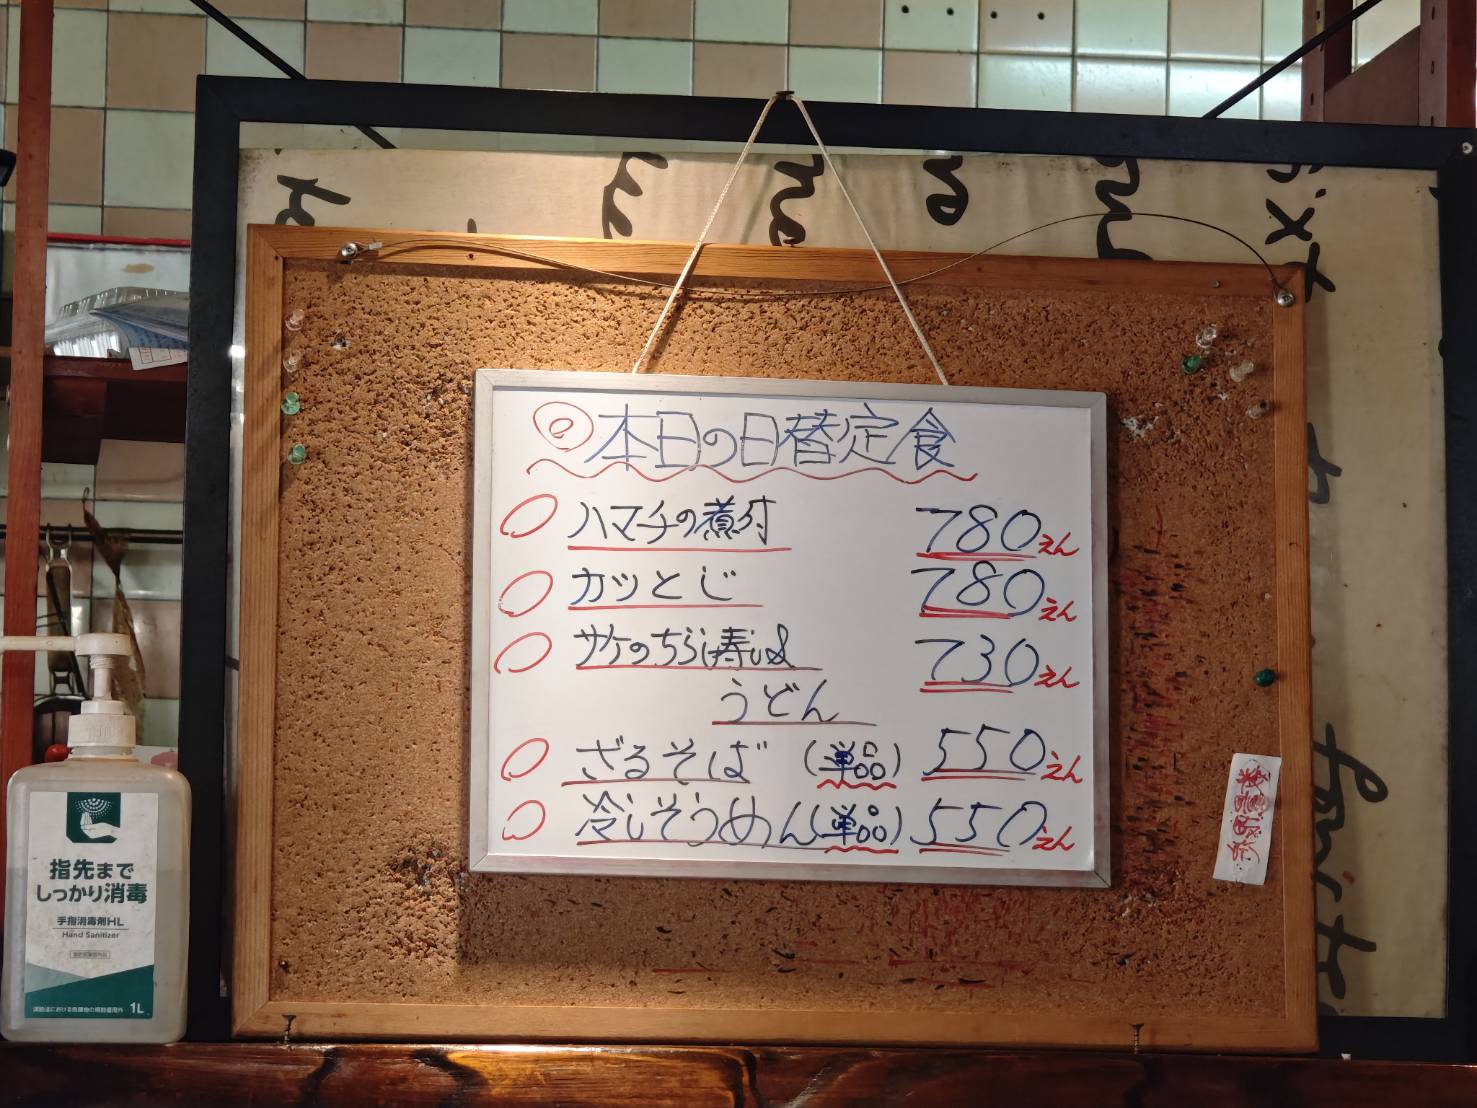 本日の日替定食
ハマチの煮付 780えん
カツとじ 780えん
サケのちらし寿し&
うどん 730えん
ざるそば (単品) 550えん
冷しそうめん(単品) 550えん
指先まで
しっかり消毒
手指消毒剤HL
Hand Sanitizer
1L